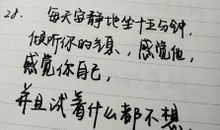 28. 每天安静地坐十五分钟,
倾听你的气息,感觉他,
感觉你自己,
并且试着什么都不想